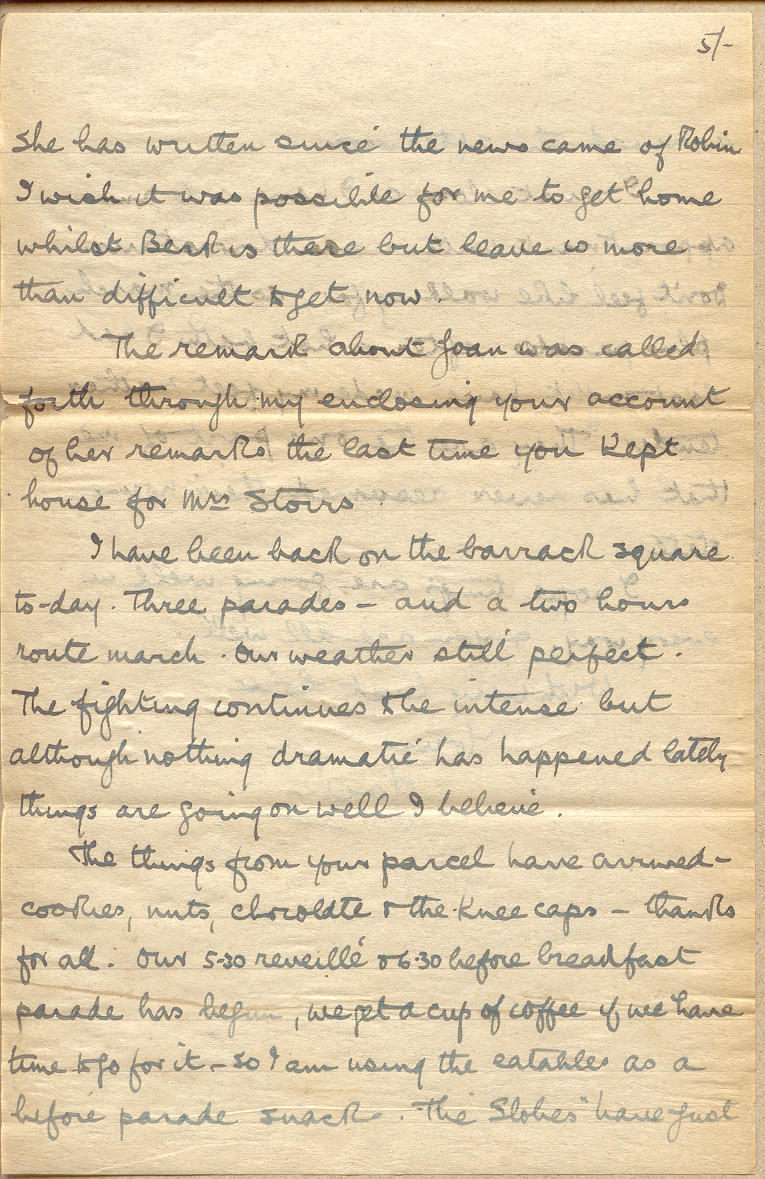 5/-
She has written since the news came of Robin
I wish it was possible for me to get home
whilst Berk is there but leave is more
than difficult to get now.
The remark about Joan was called
forth through my enclosing your account
of her remarks the last time you kept
house for Mrs Storrs.
I have been back on the barrack square
to-day. Three parades – and a two hours
route march. Our weather still perfect.
The fighting continues to be intense but
although nothing dramatic has happened lately
things are going on well I believe.
The things from your parcel have arrived –
cookies, nuts, chocolate & the knee caps – thanks
for all. Our 5-30 reveillé & 6.30 before breakfast
parade has begun, we get a cup of coffee if we have
time to go for it – so I am using the eatables as a
before parade snack. "The Globes" have just